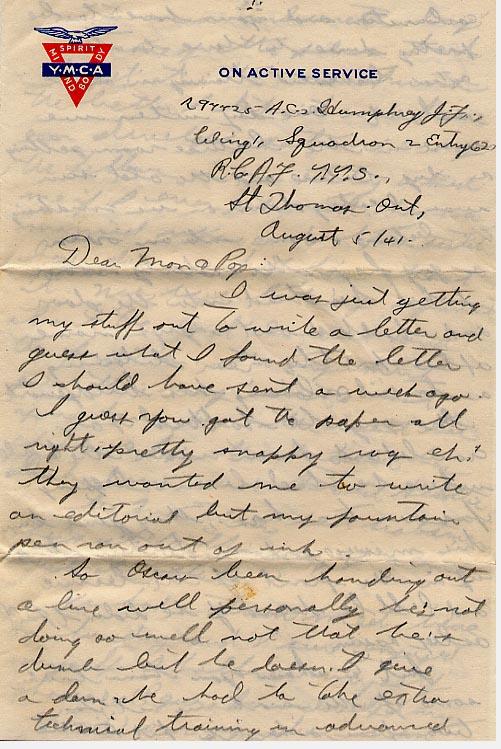 1.
SPIRIT
MIND
BODY
Y·M·C·A
ON ACTIVE SERVICE
R94425 A.C.2 Humphrey J.F.,
Wing 1, Squadron 2 Entry 62
R.C.A.F. T.T.S.,
St Thomas. Ont,
August 5/41.
Dear Mom & Pop:
I was just getting
my stuff out to write a letter and
guess what I found the letter
I should have sent a week ago.
I guess you got the paper all
right, pretty snappy rag eh!
they wanted me to write
an editorial but my fountain
pen ran out of ink.
So Oscar been handing out
a line well personally he's not
doing so well not that he's
dumb but he doesn't give
a damn he had to take extra
technical training in advanced